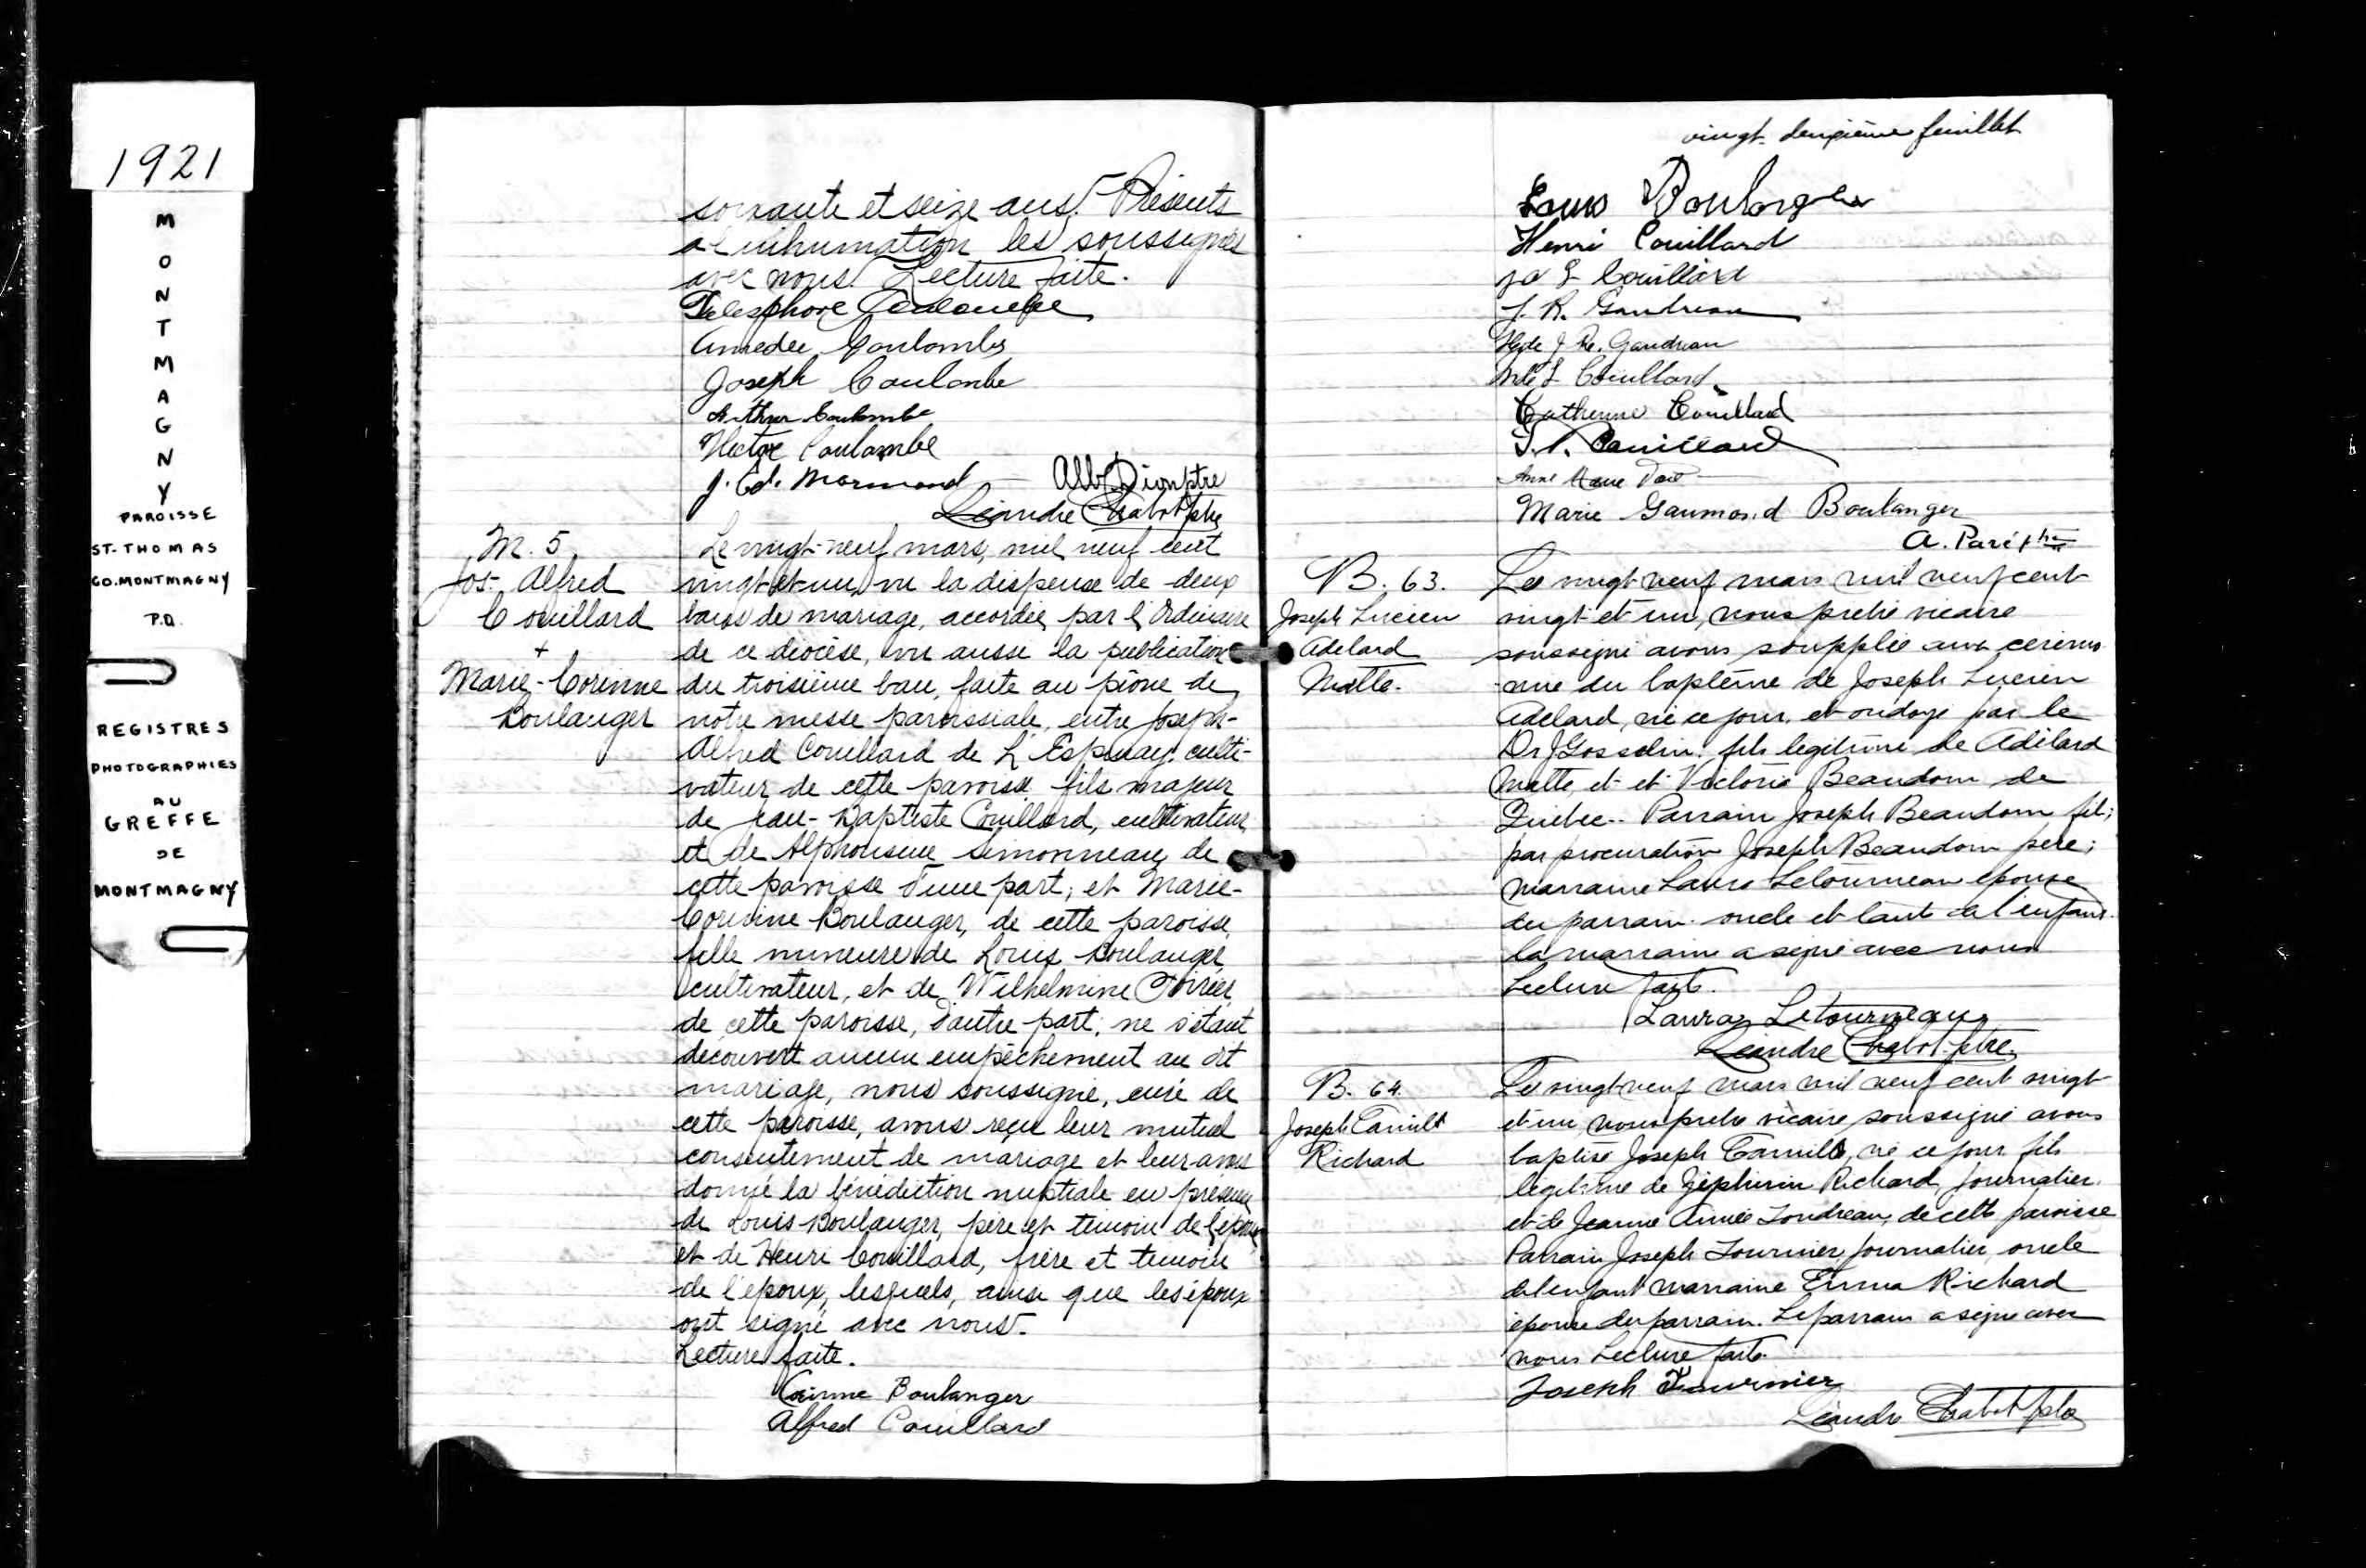 1921
MONTMAGNY
PAROISSE
ST-THOMAS
CO. MONTMAGNY
P.Q.
REGISTRES
PHOTOGRAPHIES
AU
GREFFE
DE
MONTMAGNY
soixante et seize ans. Présents
a l'inhumation les soussignés
avec nous. Lecture faite.
Telesphore Coulombe
Amedee Coulombe
Joseph Coulombe
Arthur Coulombe
Hector Coulombe
J. Ed. Normand Alb. Dion ptre
Léandre Chabot ptre
M. 5
Jos- Alfred
Couillard
+
Marie-Corinne
Boulanger
Le vingt-neuf mars, mil neuf cent
vingt-et-un, vu la dispense de deux
bans de mariage, accordée par l'Ordinaire
de ce diocèse, vu aussi la publication
du troisième ban, faite au prône de
notre messe paroissiale, entre Joseph-
Alfred Couillard de L'Espinay, culti-
vateur de cette paroisse, fils majeur
de Jean-Baptiste Couillard, cultivateur
et de Alphonsine Simonneau de
cette paroisse d'une part; et Marie-
Corinne Boulanger, de cette paroisse,
fille mineure de Louis Boulanger
cultivateur, et de Wilhelmine Poirier
de cette paroisse, d'autre part; ne s'étant
découvert aucun empêchement au dit
mariage, nous soussigné, curé de
cette paroisse, avons reçu leur mutuel
consentement de mariage et leur avons
donné la bénédiction nuptiale en présence
de Louis Boulanger, père et témoin de l'épouse
et de Henri Couillard, frère et temoin
de l'époux, lesquels, ainsi que les époux
ont signé avec nous.
Lecture faite.
Corinne Boulanger
Alfred Couillard
vingt-deuxième feuillet
Louis Boulanger
Henri Couillard
J. R. Gaudreau
J. Re. Gaudreau
Couillard
Catherine Couillard
Couillard
Anne Marie
Marie Gaumond Boulanger
A. Paré ptre
B. 63.
Joseph Lucien
Adelard
Matte.
Le vingt neuf mars mil neuf cent
vingt et un, nous pretre vicaire
soussigné avons supplée aux cérémo
nie du baptême de Joseph Lucien
Adelard, né ce jour, et ondoyé par le
Dr J Gosselin, fils legitime de Adélard
Matte, et et Victoria Beaudoin de
Quebec. Parrain Joseph Beaudoin fils;
par procuration Joseph Beaudoin père;
marraine Laura Letourneau epouse
du parrain. oncle et tante de l'enfant.
la marraine a signé avec nous
Lecture faite.
Laura Letourneau
Léandre Chabot ptre
B. 64.
Joseph Camille
Richard
Le vingt neuf mars mil neuf cent vingt
et un, nous pretre vicaire soussigné avons
baptisé Joseph Camille, né ce jour fils
legitime de Zéphirin Richard, journalier.
et de Jeanne Aimée Goudreau, de cette paroisse
Parrain Joseph Fournier, journalier, oncle
de l'enfant marraine Emma Richard
épouse du parrain. Le parrain a signé avec
nous Lecture faite.
Joseph Fournier
Léandre Chabot ptre